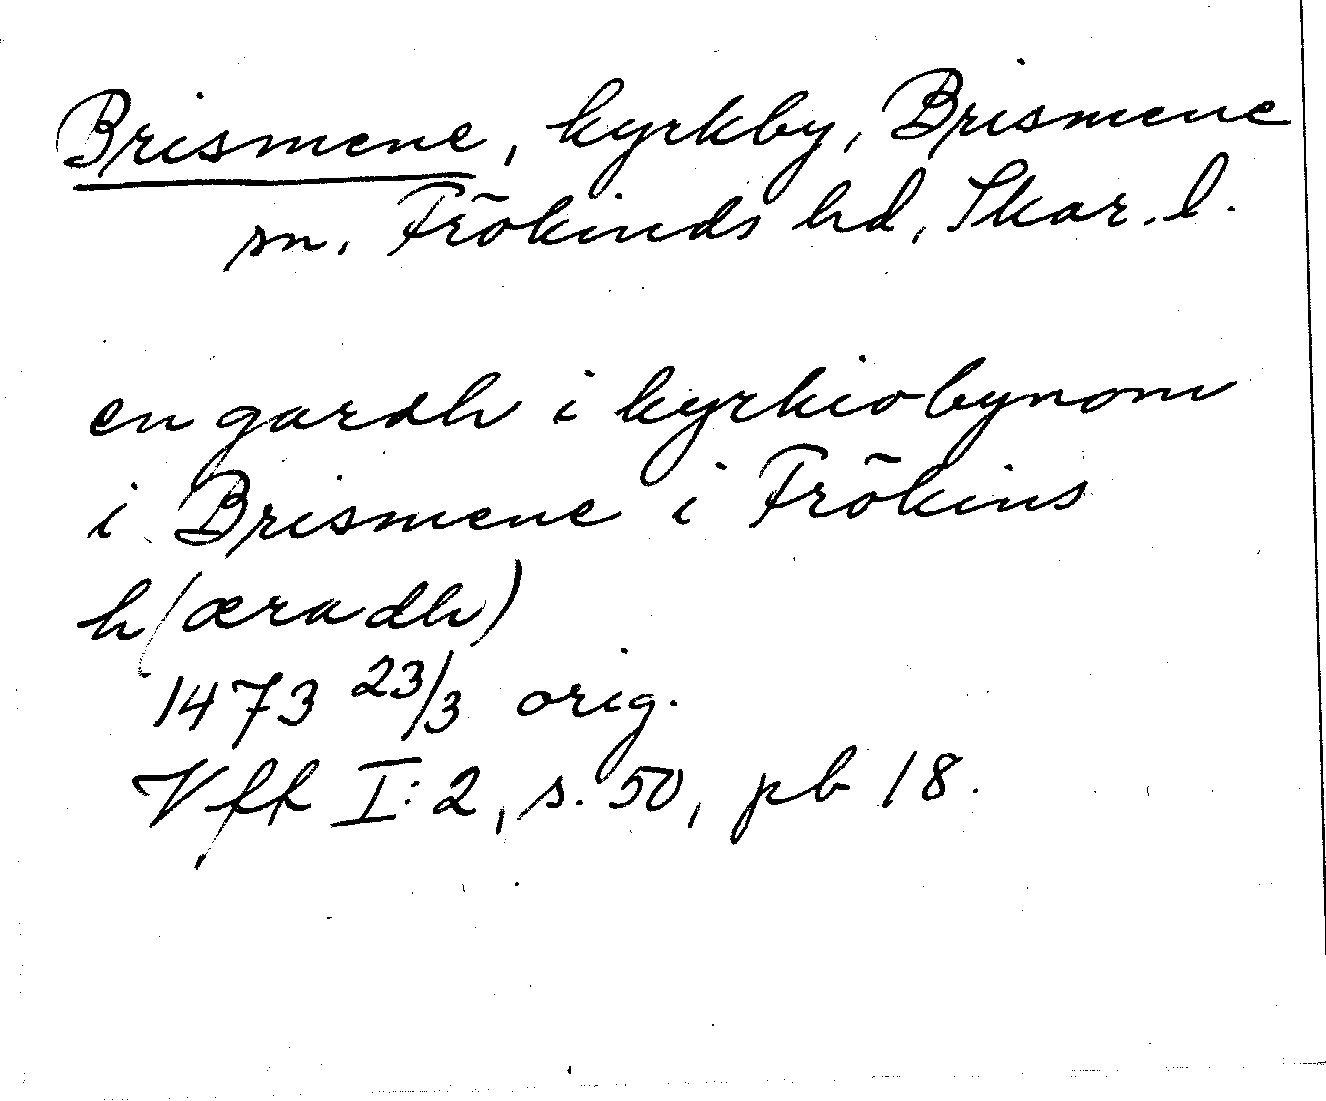 Brismene, kyrkby, Brismene
sn. Frökinds hd, Skar. l.
en gardh i kyrkiobynom
i Brismene i Frökins
h(æradh)
1473 23/3 orig.
Vff I:2, s. 50, pb 18.